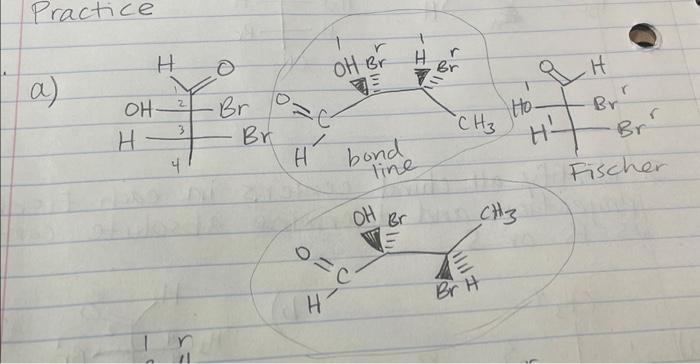 Practice
a)
H O
1
OH 2 Br
H 3 Br
4
l r l r
OH Br H Br
O C CH3
H
bond
line
O H
l r
HO Br
l r
H Br
Fischer
OH Br CH3
O C
H Br H
l r